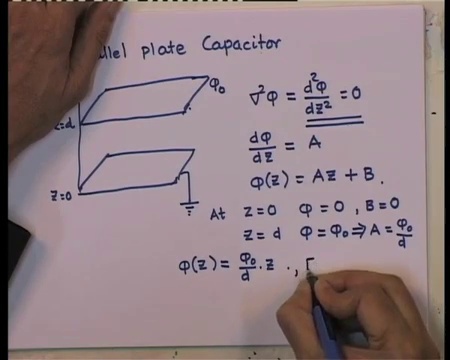 plate Capacitor
φ₀
∇²φ = d²φ/dz² = 0
dφ/dz = A
φ(z) = Az + B.
z=0
At z=0 φ=0, B=0
z=d φ=φ₀ ⇒ A = φ₀/d
φ(z) = φ₀/d · z ·,